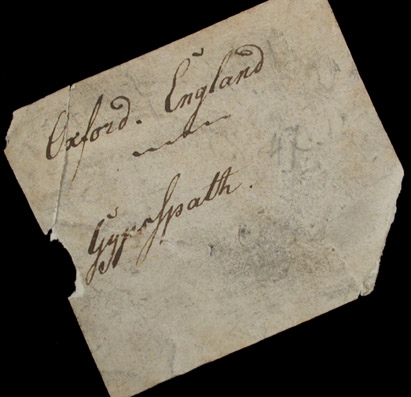 Oxford. England
Gypsspath.